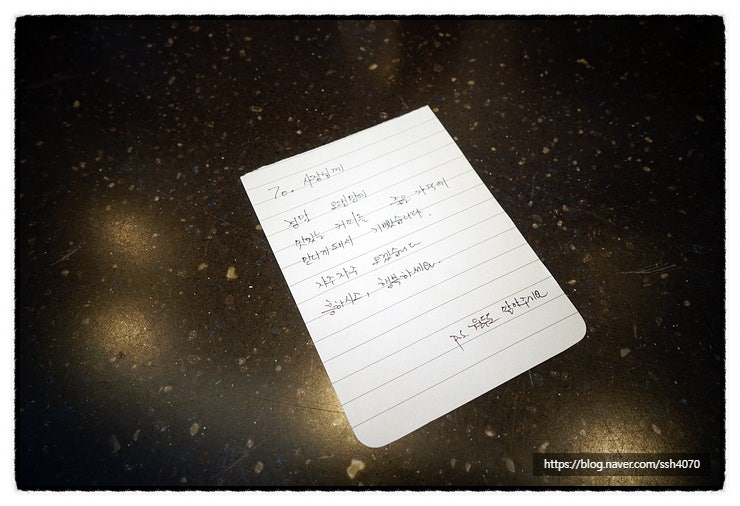 To. 사장님께
정말 오랜만에 좋은 가격에
맛있는 커피를
만나게 돼서 기뻤습니다.
자주자주 오겠습니다
흥하시고, 행복하세요.
P.S. 알아주세요
https://blog.naver.com/ssh4070